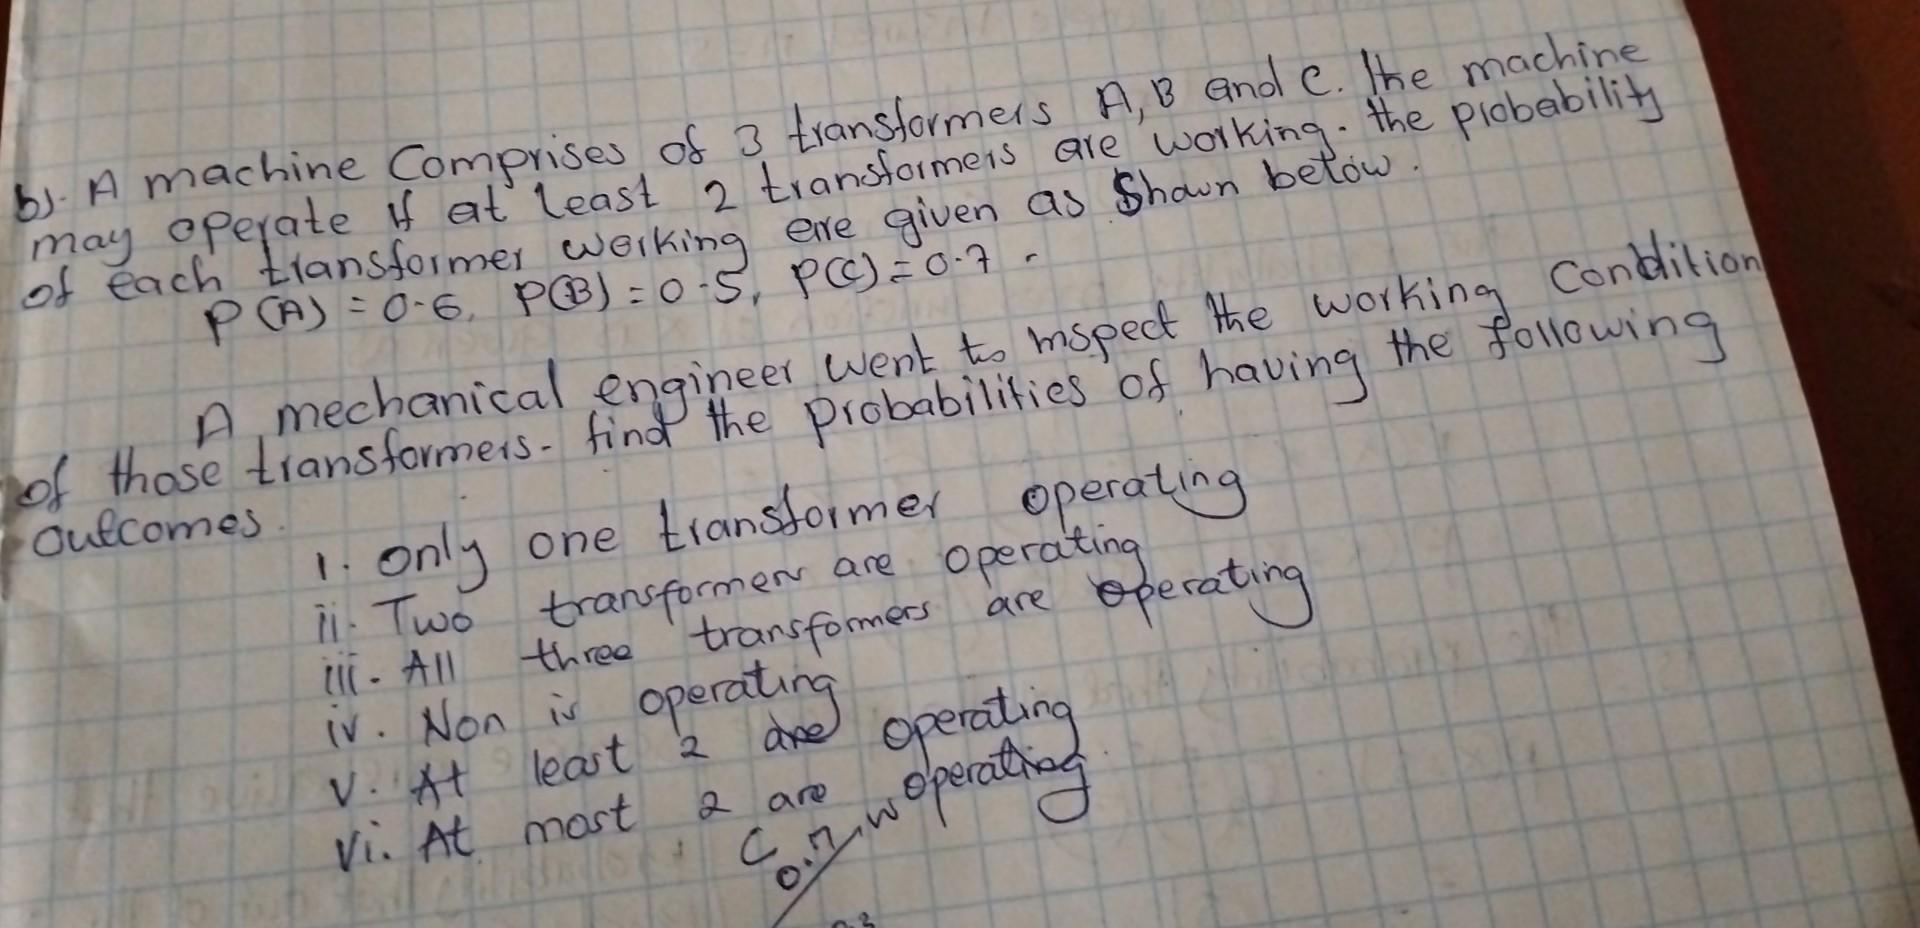 b). A machine Comprises of 3 transformers A, B and C. The machine
may operate if at least 2 transformers are working. the probability
of each transformer working are given as Shown below.
P(A) = 0.6, P(B) = 0.5, P(C) = 0.7.
A mechanical engineer went to inspect the working Condition
of those transformers. find the probabilities of having the following
outcomes.
i. Only one transformer operating
ii. Two transformers are operating
iii. All three transformers are operating
iv. Non is operating
v. At least 2 are operating
vi. At most 2 are operating
C 0.7 W
0.3